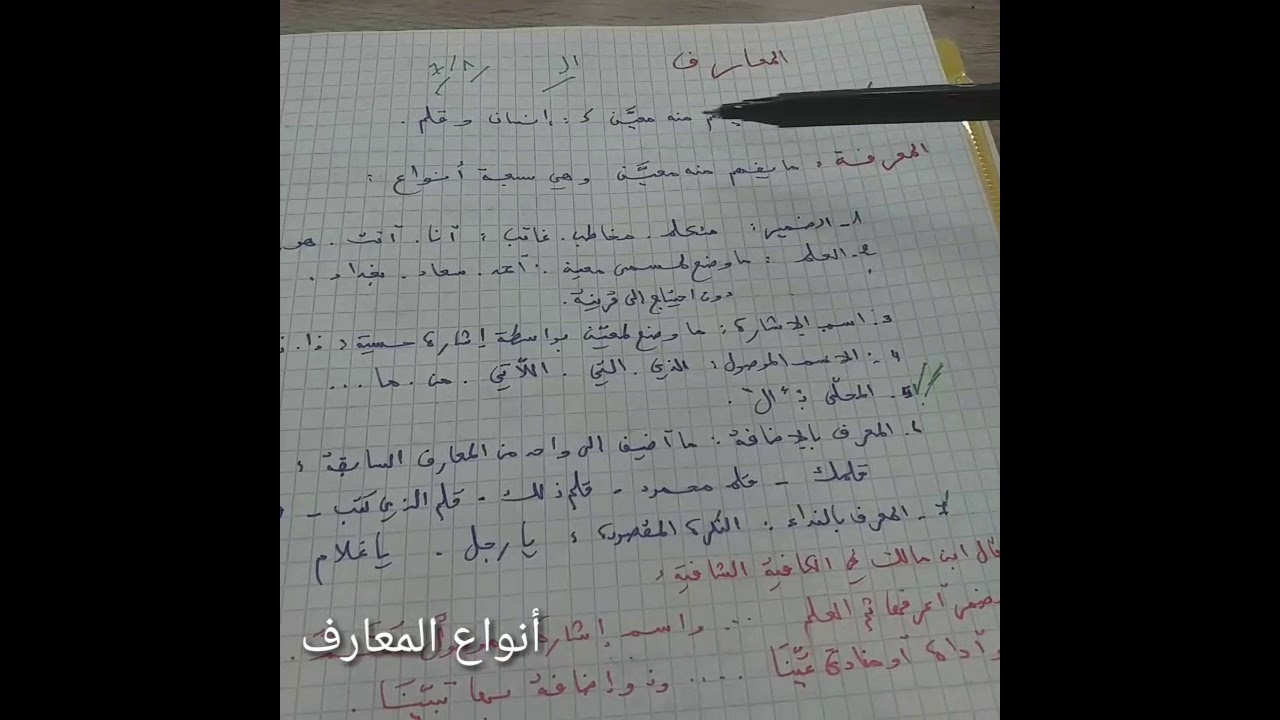 المعارف ال
منه معيَّن ك: إنسان و قلم.
المعرفة: ما يفهم منه معيَّن وهي سبعة أنواع:
1- الضمير: متكلم. مخاطب. غائب: أنا. أنت. هو
2- العلم: ما وضع لمسمى معين: أحمد. سعاد. بغداد.
دون احتياج الى قرينة.
3. اسم الإشارة: ما وضع لمعيّن بواسطة إشارة حسية: ذا.
4-: الاسم الموصول: الذي. التي. اللّاتي. من. ما ...
5. المحلّى بـ "ال".
6. المعرف بالإضافة: ما أضيف الى واحد من المعارف السابقة:
قلمك - قلم محمود - قلم ذلك - قلم الذي كتب -
7- المعرف بالنداء: النكرة المقصودة: يا رجل. يا غلام
قال ابن مالك في الكافية الشافية:
فمضمر أعرفها ثم العلم ... واسم إشارة
أنواع المعارف
وأداة أو منادى عُيِّنَا .... وذو إضافة بها تبيَّنَا.